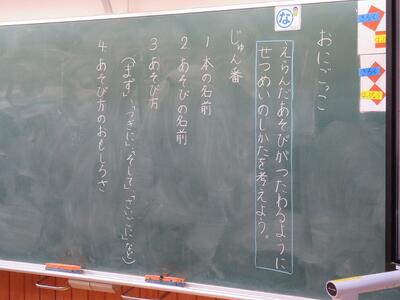 な
おにごっこ
えらんだあそびがつたわるように
せつめいのしかたを考えよう。
じゅん番
1 本の名前
2 あそびの名前
3 あそび方
(「まず」、「つぎに」、「そして」、「さいごに」など)
4 あそび方のおもしろさ